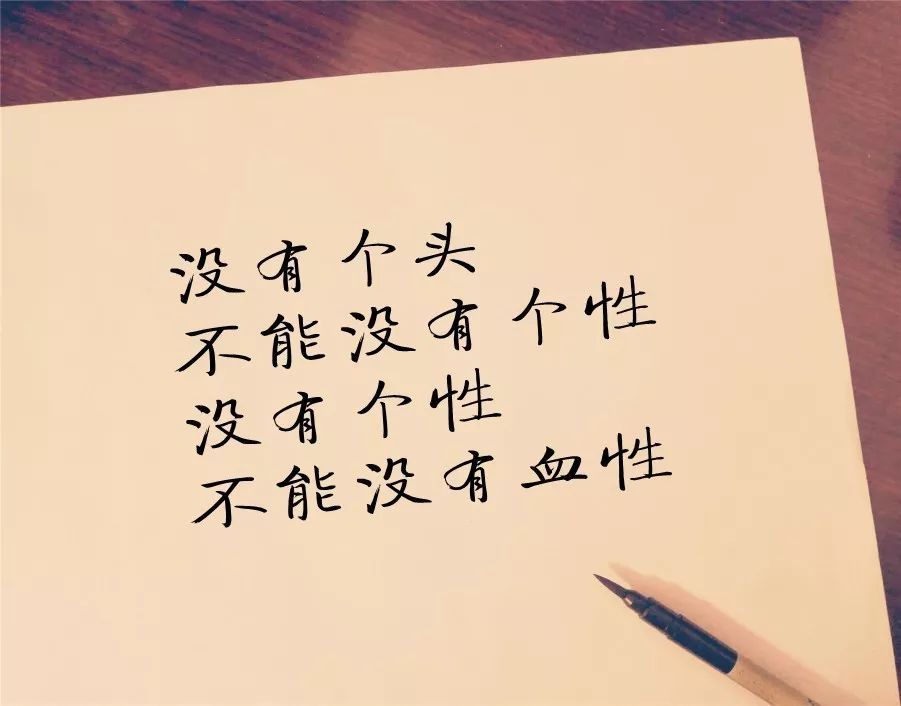 没有个头
不能没有个性
没有个性
不能没有血性